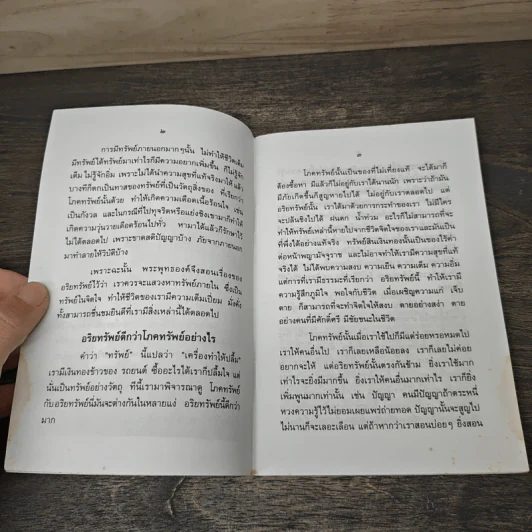 ๒
การมีทรัพย์ภายนอกมากๆนั้น ไม่ทำให้ชีวิตเต็ม
มีทรัพย์ได้ทรัพย์มาเท่าไรก็มีความอยากเพิ่มขึ้น ก็ไม่รู้จัก
เต็ม ไม่รู้จักอิ่ม เพราะไม่ได้นำความสุขที่แท้จริงมาให้ แล้ว
บางทีก็ตกเป็นทาสของทรัพย์ที่เป็นวัตถุสิ่งของ ที่เรียกว่า
โภคทรัพย์นั้นด้วย ทำให้เกิดความเดือดเนื้อร้อนใจ เช่น
เป็นกังวล และในกรณีที่ไปทุจริตหรือแย่งชิงเขามาก็ทำให้
เกิดความวุ่นวายเดือดร้อนไปทั่ว หามาได้แล้วก็รักษาไว้
ไม่ได้ตลอดไป เพราะขาดสติปัญญาบ้าง ภัยจากภายนอก
มาทำลายให้วิบัติบ้าง
เพราะฉะนั้น พระพุทธองค์จึงสอนเรื่องของ
อริยทรัพย์ไว้ว่า เราควรจะแสวงหาทรัพย์ภายใน ซึ่งเป็น
ทรัพย์ในจิตใจ ทำให้ชีวิตของเรามีความเต็มเปี่ยม มั่งคั่ง
ทั้งสามารถชื่นชมยินดีที่เรามีสิ่งเหล่านี้ได้ตลอดไป
อริยทรัพย์ดีกว่าโภคทรัพย์อย่างไร
คำว่า "ทรัพย์" นี้แปลว่า "เครื่องทำให้ปลื้ม"
เรามีเงินทองข้าวของ รถยนต์ ซื้ออะไรได้เราก็ปลื้มใจ แต่
นั่นเป็นทรัพย์อย่างวัตถุ ทีนี้เรามาพิจารณาดู โภคทรัพย์
กับอริยทรัพย์นี่มันจะต่างกันในหลายแง่ อริยทรัพย์นี้ดีกว่า
มาก
๓
โภคทรัพย์นั้นเป็นของที่ไม่เที่ยงแท้ จะได้มาก็
ต้องซื้อหา มีแล้วก็ไม่อยู่กับเราได้นานนัก เพราะว่าถ้ามัน
มีภัยเกิดขึ้นก็สูญหายไปได้ ไม่อยู่กับเราตลอดไป แต่
อริยทรัพย์นั้น เราได้มาด้วยการกระทำของเรา ไม่มีใคร
จะปล้นชิงไปได้ ฝนตก น้ำท่วม อะไรก็ไม่สามารถที่จะ
ทำให้ทรัพย์เหล่านี้หายไปจากชีวิตจิตใจของเราและมันเป็น
ที่พึ่งได้อย่างแท้จริง ทรัพย์สินเงินทองนั้นเป็นของไร้ค่า
ต่อหน้าพญามัจจุราช และไม่อาจทำให้เรามีความสุขที่แท้
จริงได้ ไม่ได้พบความสงบ ความเย็น ความเต็ม ความอิ่ม
แต่การที่เรามีธรรมะที่เรียกว่า อริยทรัพย์นี้ ทำให้เรามี
ความรู้สึกภูมิใจ พอใจกับชีวิต เมื่อเผชิญความแก่ เจ็บ
ตาย ก็สามารถที่จะทำจิตใจให้สงบ ตายอย่างสง่า ตาย
อย่างคนที่มีศักดิ์ศรี มีชัยชนะในชีวิต
โภคทรัพย์นั้นเมื่อเราใช้ไปก็มีแต่ร่อยหรอหมดไป
เราให้คนอื่นไป เราก็เลยเหลือน้อยลง เราก็เลยไม่ค่อย
อยากจะให้ แต่อริยทรัพย์นั้นตรงกันข้าม ยิ่งเราใช้มาก
เท่าไรก็จะยิ่งมีมากขึ้น ยิ่งเราให้คนอื่นมากเท่าไร เราก็ยิ่ง
เพิ่มพูนมากเท่านั้น เช่น ปัญญา คนมีปัญญาถ้าตระหนี่
หวงความรู้ไว้ไม่ยอมเผยแพร่ถ่ายทอด ปัญญานั้นจะสูญไป
ไม่นานก็จะเลอะเลือน แต่ถ้าหากว่าเราสอนบ่อยๆ ยิ่งสอน